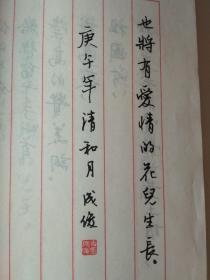 也將有愛情的花兒生長。
庚午年清和月成俊